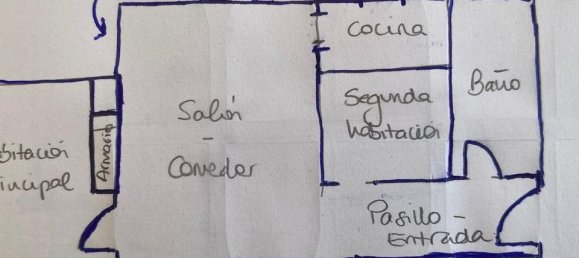 Cocina
Baño
Salón
-
Comedor
Segunda
habitación
Armario
bitación
incipal
Pasillo -
Entrada